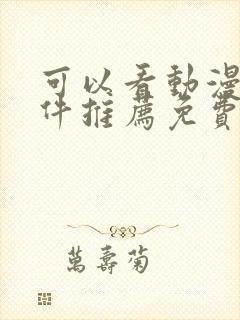 可以看動漫
件推薦免費
萬壽菊